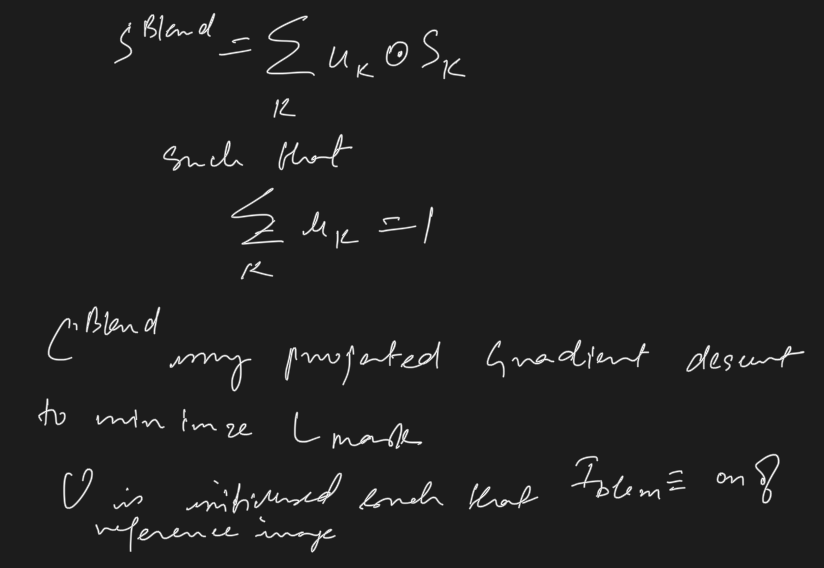 S^Blend = Σ u_k ⊙ S_k
k
such that
Σ u_k = 1
k
C^Blend using projected Gradient descent
to minimze L mask
U is such that I ≡ on
reference image